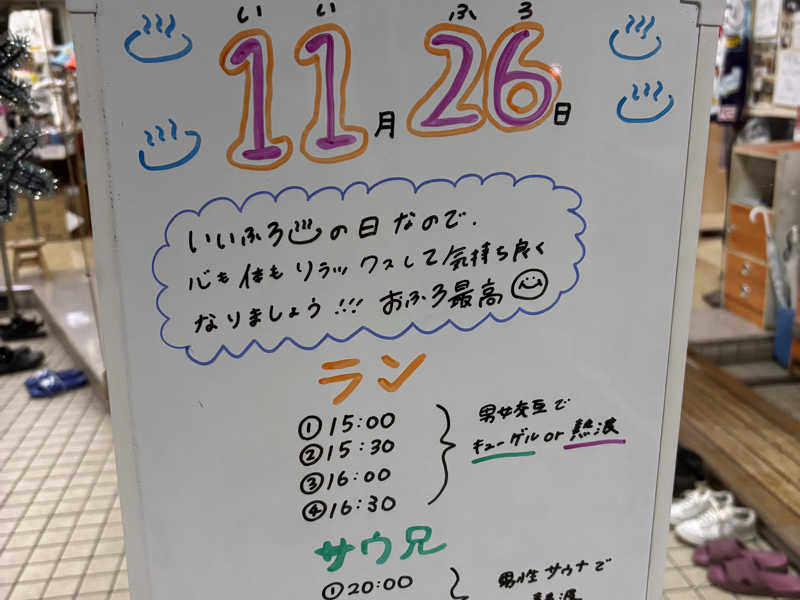 いい ふろ
11月26日
いいふろ♨の日なので、
心も体もリラックスして気持ち良く
なりましょう!!! おふろ最高
ラン
①15:00
②15:30
③16:00
④16:30
男女交互で
キューゲル or 熱波
サウ兄
①20:00
男性サウナで
熱波